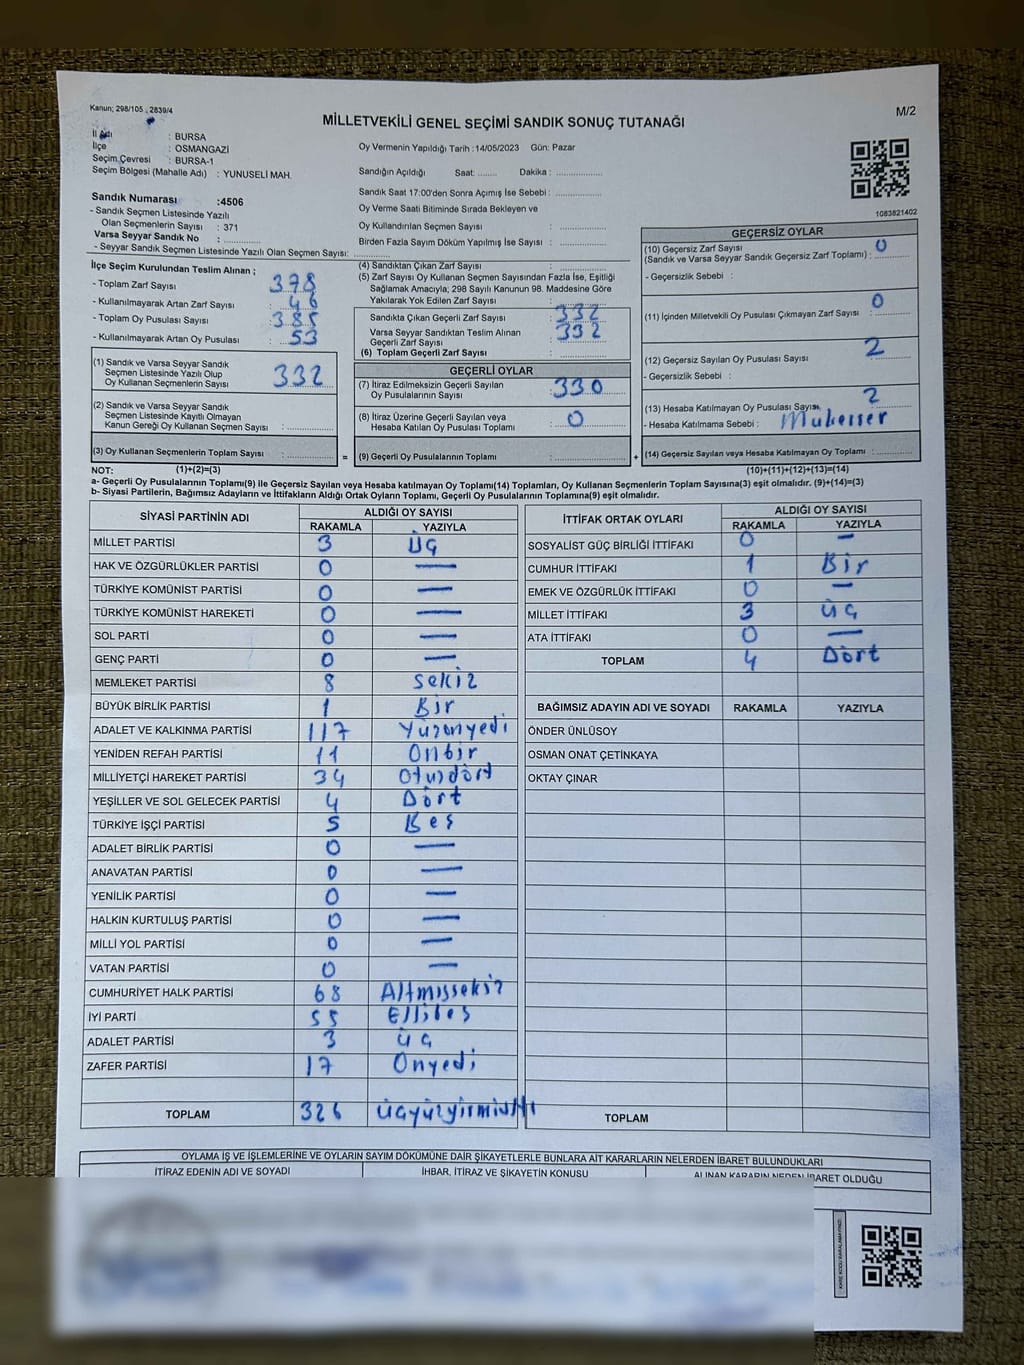 Kanun; 298/105 , 2839/4
MİLLETVEKİLİ GENEL SEÇİMİ SANDIK SONUÇ TUTANAĞI
M/2
İl Adı : BURSA
İlçe : OSMANGAZİ
Seçim Çevresi : BURSA-1
Seçim Bölgesi (Mahalle Adı) : YUNUSELİ MAH.
Sandık Numarası :4506
- Sandık Seçmen Listesinde Yazılı
Olan Seçmenlerin Sayısı : 371
Varsa Seyyar Sandık No :
- Seyyar Sandık Seçmen Listesinde Yazılı Olan Seçmen Sayısı:
Oy Vermenin Yapıldığı Tarih :14/05/2023 Gün: Pazar
Sandığın Açıldığı Saat: ........ Dakika : ..................
Sandık Saat 17:00'den Sonra Açımış İse Sebebi :
Oy Verme Saati Bitiminde Sırada Bekleyen ve
Oy Kullandırılan Seçmen Sayısı :
Birden Fazla Sayım Döküm Yapılmış İse Sayısı :
1083821402
İlçe Seçim Kurulundan Teslim Alınan ;
- Toplam Zarf Sayısı : 378
- Kullanılmayarak Artan Zarf Sayısı : 46
- Toplam Oy Pusulası Sayısı : 385
- Kullanılmayarak Artan Oy Pusulası : 53
(1) Sandık ve Varsa Seyyar Sandık
Seçmen Listesinde Yazılı Olup
Oy Kullanan Seçmenlerin Sayısı : 332
(2) Sandık ve Varsa Seyyar Sandık
Seçmen Listesinde Kayıtlı Olmayan
Kanun Gereği Oy Kullanan Seçmen Sayısı :
(3) Oy Kullanan Seçmenlerin Toplam Sayısı :
=
(4) Sandıktan Çıkan Zarf Sayısı :
(5) Zarf Sayısı Oy Kullanan Seçmen Sayısından Fazla İse, Eşitliği
Sağlamak Amacıyla; 298 Sayılı Kanunun 98. Maddesine Göre
Yakılarak Yok Edilen Zarf Sayısı :
Sandıkta Çıkan Geçerli Zarf Sayısı : 332
Varsa Seyyar Sandıktan Teslim Alınan
Geçerli Zarf Sayısı : 332
(6) Toplam Geçerli Zarf Sayısı :
GEÇERLİ OYLAR
(7) İtiraz Edilmeksizin Geçerli Sayılan
Oy Pusulalarının Sayısı : 330
(8) İtiraz Üzerine Geçerli Sayılan veya
Hesaba Katılan Oy Pusulası Toplamı : 0
(9) Geçerli Oy Pusulalarının Toplamı :
+
GEÇERSİZ OYLAR
(10) Geçersiz Zarf Sayısı
(Sandık ve Varsa Seyyar Sandık Geçersiz Zarf Toplamı) : 0
- Geçersizlik Sebebi :
(11) İçinden Milletvekili Oy Pusulası Çıkmayan Zarf Sayısı : 0
(12) Geçersiz Sayılan Oy Pusulası Sayısı : 2
- Geçersizlik Sebebi :
(13) Hesaba Katılmayan Oy Pusulası Sayısı, 2
- Hesaba Katılmama Sebebi :
(14) Geçersiz Sayılan veya Hesaba Katılmayan Oy Toplamı :
NOT: (1)+(2)=(3) (10)+(11)+(12)+(13)=(14)
a- Geçerli Oy Pusulalarının Toplamı(9) ile Geçersiz Sayılan veya Hesaba Katılmayan Oy Toplamı(14) Toplamları, Oy Kullanan Seçmenlerin Toplam Sayısına(3) eşit olmalıdır. (9)+(14)=(3)
b- Siyasi Partilerin, Bağımsız Adayların ve İttifakların Aldığı Ortak Oyların Toplamı, Geçerli Oy Pusulalarının Toplamına(9) eşit olmalıdır.
SİYASİ PARTİNİN ADI ALDIĞI OY SAYISI
RAKAMLA YAZIYLA
MİLLET PARTİSİ 3 Üç
HAK VE ÖZGÜRLÜKLER PARTİSİ 0 —
TÜRKİYE KOMÜNİST PARTİSİ 0 —
TÜRKİYE KOMÜNİST HAREKETİ 0 —
SOL PARTİ 0 —
GENÇ PARTİ 0 —
MEMLEKET PARTİSİ 8 sekiz
BÜYÜK BİRLİK PARTİSİ 1 Bir
ADALET VE KALKINMA PARTİSİ 117 Yüzonyedi
YENİDEN REFAH PARTİSİ 11 Onbir
MİLLİYETÇİ HAREKET PARTİSİ 34 Otuzdört
YEŞİLLER VE SOL GELECEK PARTİSİ 4 Dört
TÜRKİYE İŞÇİ PARTİSİ 5 Beş
ADALET BİRLİK PARTİSİ 0 —
ANAVATAN PARTİSİ 0 —
YENİLİK PARTİSİ 0 —
HALKIN KURTULUŞ PARTİSİ 0 —
MİLLİ YOL PARTİSİ 0 —
VATAN PARTİSİ 0 —
CUMHURİYET HALK PARTİSİ 68 Altmışsekiz
İYİ PARTİ 55 Ellibeş
ADALET PARTİSİ 3 üç
ZAFER PARTİSİ 17 Onyedi
TOPLAM 326 üçyüzyirmialtı
İTTİFAK ORTAK OYLARI ALDIĞI OY SAYISI
RAKAMLA YAZIYLA
SOSYALİST GÜÇ BİRLİĞİ İTTİFAKI 0 —
CUMHUR İTTİFAKI 1 Bir
EMEK VE ÖZGÜRLÜK İTTİFAKI 0 —
MİLLET İTTİFAKI 3 üç
ATA İTTİFAKI 0 —
TOPLAM 4 Dört
BAĞIMSIZ ADAYIN ADI VE SOYADI RAKAMLA YAZIYLA
ÖNDER ÜNLÜSOY
OSMAN ONAT ÇETİNKAYA
OKTAY ÇINAR
TOPLAM
OYLAMA İŞ VE İŞLEMLERİNE VE OYLARIN SAYIM DÖKÜMÜNE DAİR ŞİKAYETLERLE BUNLARA AİT KARARLARIN NELERDEN İBARET BULUNDUKLARI
İTİRAZ EDENİN ADI VE SOYADI İHBAR, İTİRAZ VE ŞİKAYETİN KONUSU ALINAN KARARIN NEDEN İBARET OLDUĞU